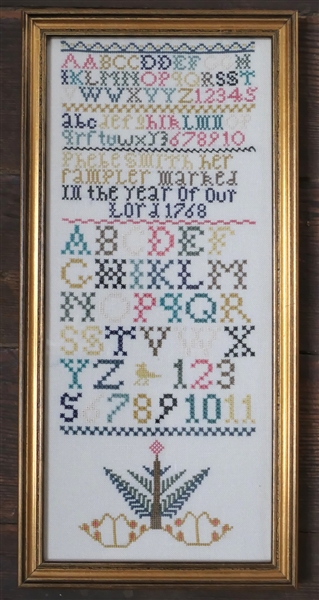 AABCCDDEFGGH
IKLMNNOPQQRSST
VWWXYYZ12345
abcdefghiklmnop
qrſtuwxyz678910
Phebe Smith her
ſampler marked
In the Year Of Our
Lord 1768
ABCDEF
GHIKLM
NOPQR
SSTVWX
YZ 123
S67891011